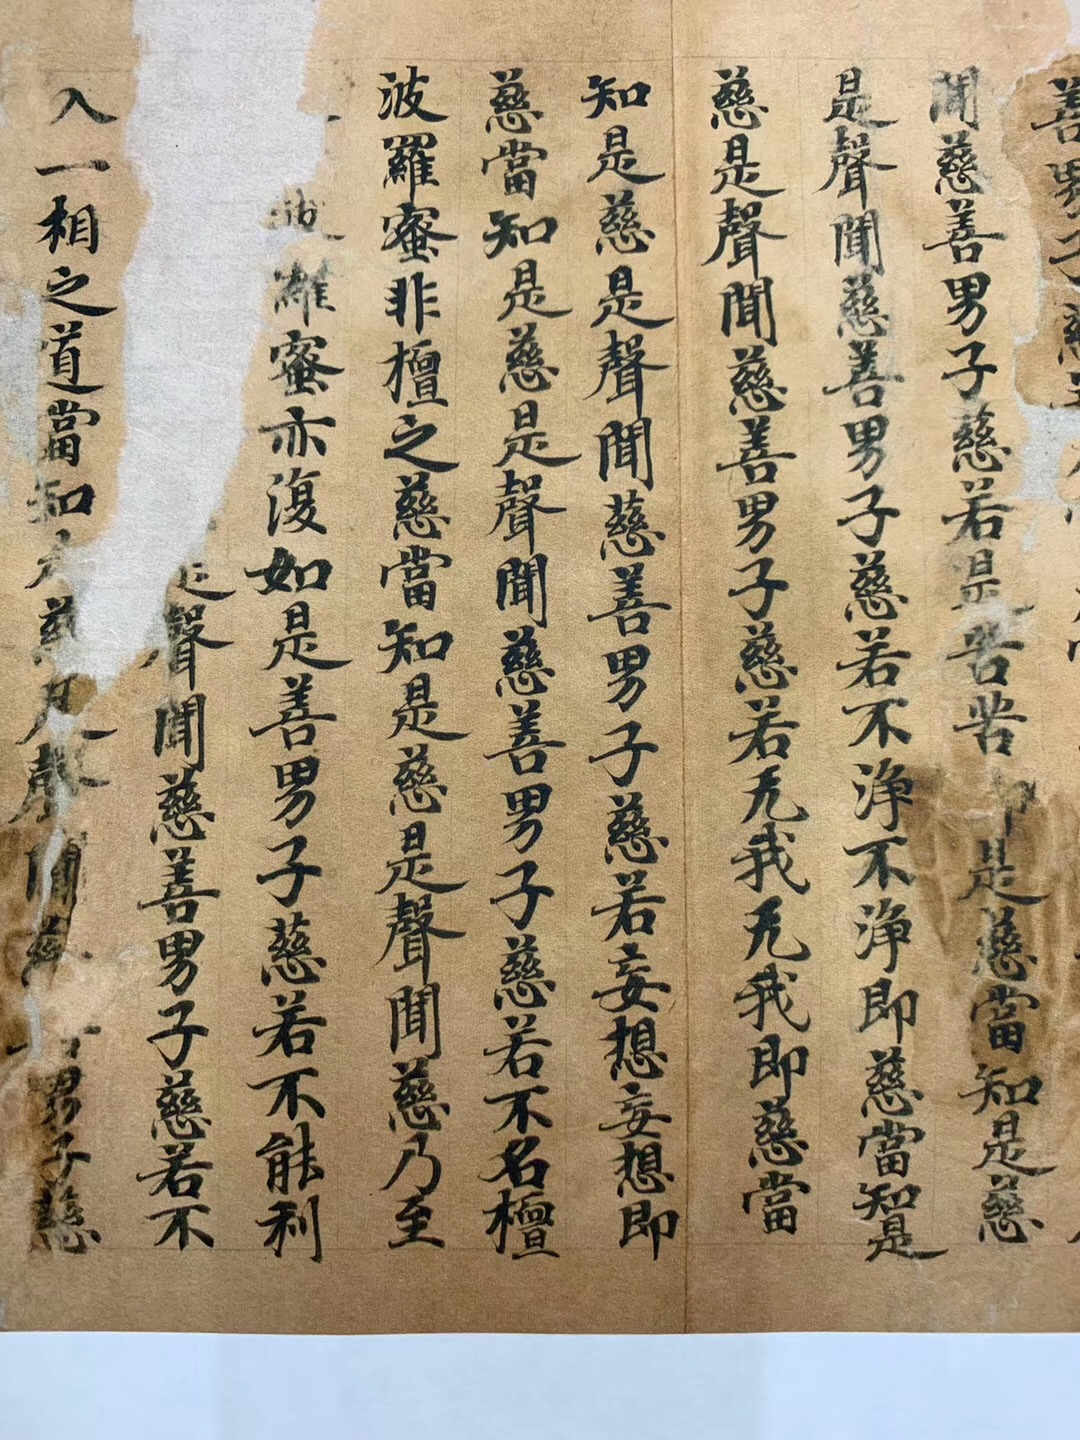 善男子慈
聞慈善男子慈若是苦苦即是慈當知是慈
是聲聞慈善男子慈若不淨不淨即慈當知是
慈是聲聞慈善男子慈若无我无我即慈當
知是慈是聲聞慈善男子慈若妄想妄想即
慈當知是慈是聲聞慈善男子慈若不名檀
波羅蜜非檀之慈當知是慈是聲聞慈乃至
羅蜜亦復如是善男子慈若不能利
是聲聞慈善男子慈若不
入一相之道當知是慈是聲聞慈善男子慈